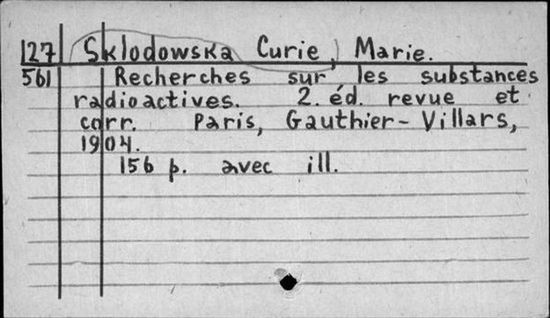 127 Sklodowska Curie, Marie.
561 Recherches sur les substances
radioactives. 2. éd. revue et
corr. Paris, Gauthier-Villars,
1904.
156 p. avec ill.